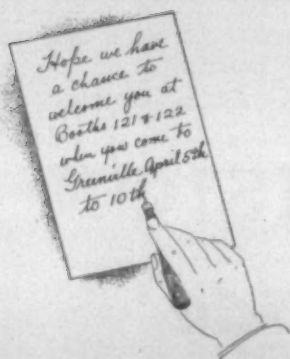 Hope we have
a chance to
welcome you at
Booths 121 & 122
when you come to
Greenville April 5th
to 10th